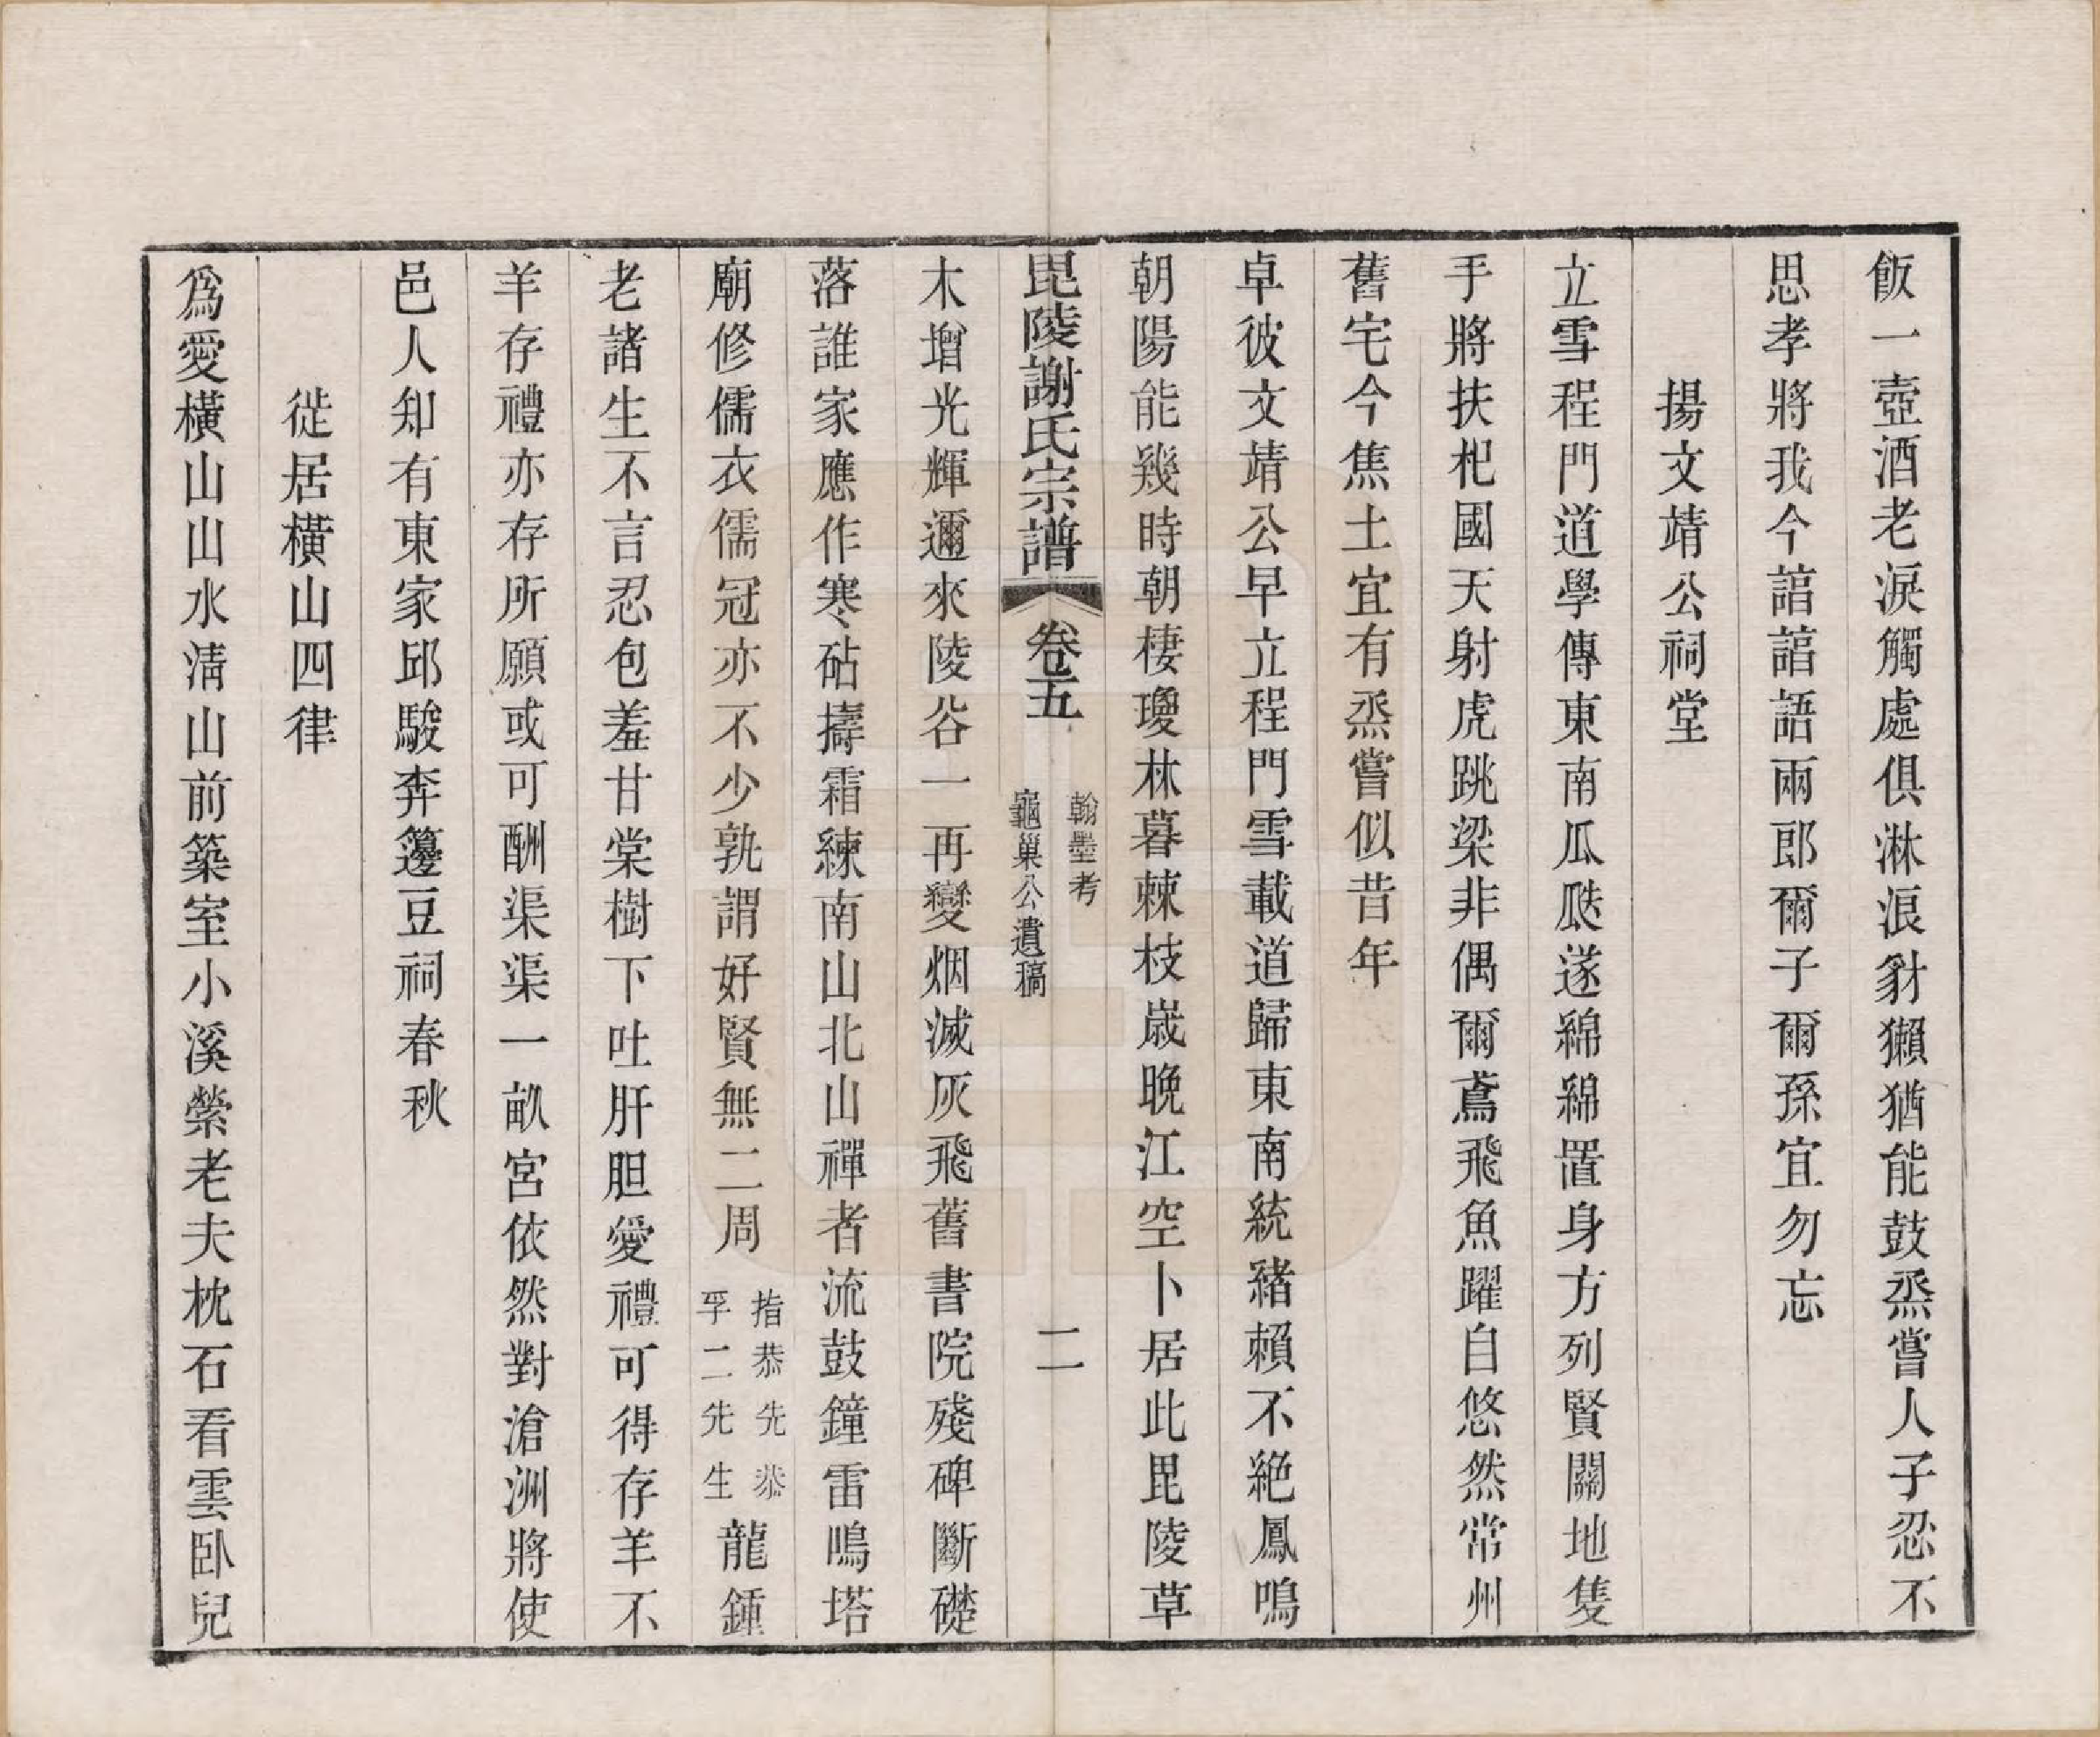 飯一壺酒老淚觸處俱淋浪豺獺猶能鼓烝嘗人子忍不
思孝將我今諳諳語兩郎爾子爾孫宜勿忘
揚文靖公祠堂
立雪程門道學傳東南瓜瓞遂綿綿置身方列賢關地隻
手將扶杞國天射虎跳梁非偶爾鳶飛魚躍自悠然常州
舊宅今焦土宜有烝嘗似昔年
卓彼文靖公早立程門雪載道歸東南統緒賴不絶鳳鳴
朝陽能幾時朝棲瓊林暮棘枝歲晚江空卜居此毘陵草
毘陵謝氏宗譜 卷五 翰墨考 龜巢公遺稿 二
木增光輝邇來陵谷一再變烟滅灰飛舊書院殘碑斷礎
落誰家應作寒砧擣霜練南山北山禪者流鼓鐘雷鳴塔
廟修儒衣儒冠亦不少孰謂好賢無二周指恭先恭孚二先生龍鍾
老諸生不言忍包羞甘棠樹下吐肝胆愛禮可得存羊不
羊存禮亦存所願或可酬渠渠一畝宮依然對滄洲將使
邑人知有東家邱駿奔籩豆祠春秋
徙居橫山四律
爲愛橫山山水淸山前築室小溪縈老夫枕石看雲臥兒